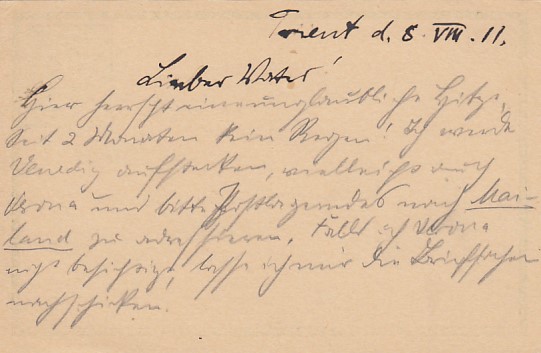 Trient d. 8. VIII. 11.
Lieber Vater!
Hier herrscht eine unglaubliche Hitze,
seit 2 Monaten kein Regen! Ich werde
Venedig aufstecken, vielleicht auch
Verona und bitte Postlagerndes nach Mai-
land zu adressieren. Falls ich Verona
nicht besichtige, lasse ich mir die Briefsachen
nachschicken.